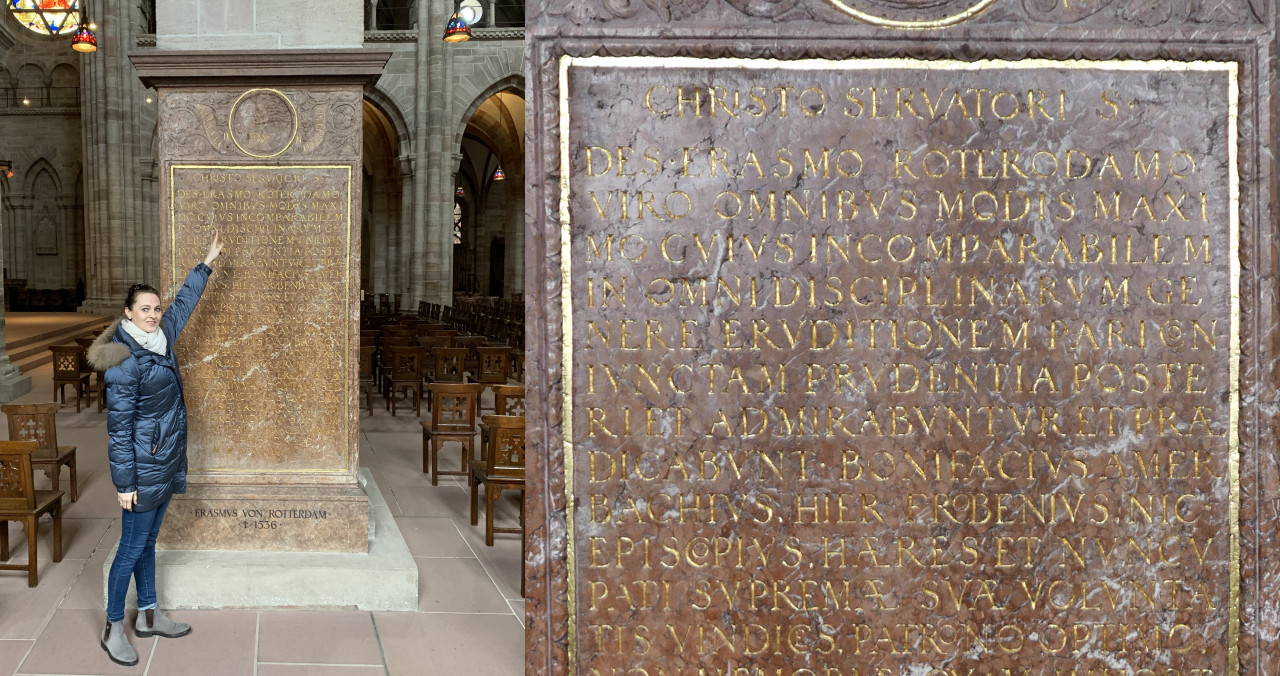 ERASMVS VON ROTTERDAM
· † 1536 ·
CHRISTO SERVATORI S·
DES·ERASMO ROTERODAMO
VIRO OMNIBVS MODIS MAXI
MO CVIVS INCOMPARABILEM
IN OMNI DISCIPLINARVM GE
NERE ERVDITIONEM PARI CON
IVNCTAM PRVDENTIA POSTE
RI ET ADMIRABVNTVR ET PRÆ
DICABVNT· BONIFACIVS AMER
BACHIVS, HIER FROBENIVS, NIC·
EPISCOPIVS, HÆRES ET NVNCV
PATI SVPREMÆ SVÆ VOLVNTA
TIS VINDICES, PATRONO OPTIMO,